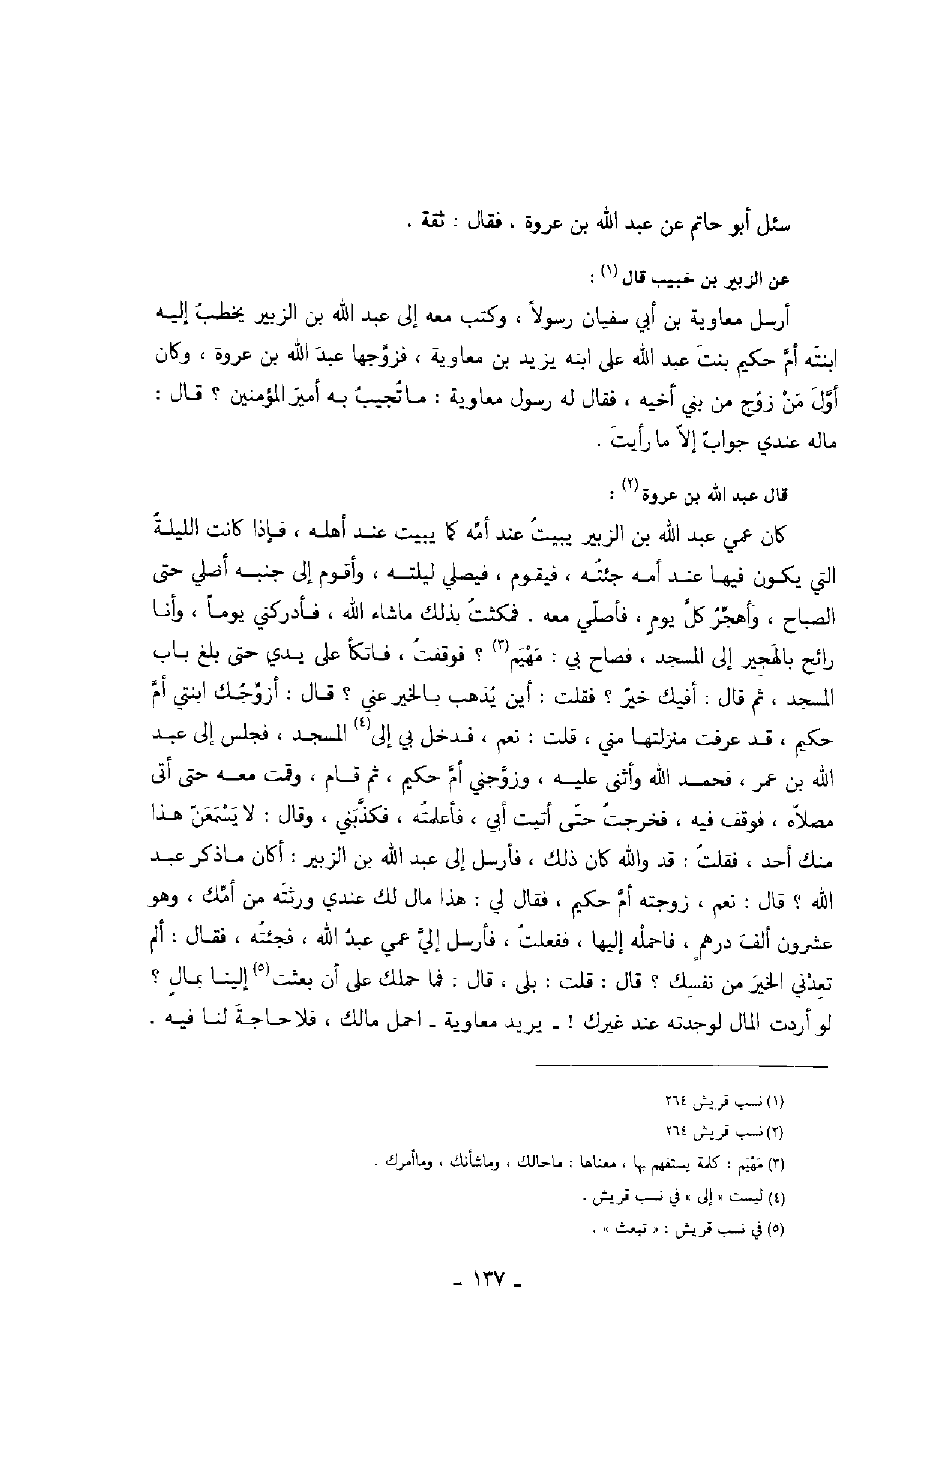 سئل أبو حاتم عن عبد الله بن عروة ، فقال : ثقة .
عن الزبير بن خبيب قال (١) :
أرسل معاوية بن أبي سفيان رسولاً ، وكتب معه إلى عبد الله بن الزبير يخطبُ إليه
ابنتَه أمَّ حكيم بنتَ عبد الله على ابنه يزيد بن معاوية ، فزوَّجها عبدَ الله بن عروة ، وكان
أوَّلَ مَنْ زوَّج من بني أخيه ، فقال له رسول معاوية : ماتُجيبُ به أميرَ المؤمنين ؟ قال :
ماله عندي جوابٌ إلاّ ما رأيتَ .
قال عبد الله بن عروة (٢) :
كان عمي عبد الله بن الزبير يبيتُ عند أمّه كما يبيت عند أهله ، فإذا كانت الليلةُ
التي يكون فيها عند أمه جئتُه ، فيقوم ، فيصلي ليلته ، وأقوم إلى جنبه أصلي حتى
الصباح ، وأُهجِّرُ كلَّ يومٍ ، فأصلّي معه . فمكثتُ بذلك ماشاء الله ، فأدركني يوماً ، وأنا
رائح بالهَجير إلى المسجد ، فصاح بي : مَهْيَم (٣) ؟ فوقفتُ ، فاتكأ على يدي حتى بلغ باب
المسجد ، ثم قال : أفيك خيرٌ ؟ فقلت : أين يُذهب بالخير عني ؟ قال : أزوِّجُك ابنتي أمَّ
حكيم ، قد عرفت منزلتها مني ، قلت : نعم ، فدخل بي إلى (٤) المسجد ، فجلس إلى عبد
الله بن عمر ، فحمد الله وأثنى عليه ، وزوَّجني أمَّ حكيم ، ثم قام ، وقمت معه حتى أتى
مصلاّه ، فوقف فيه ، فخرجتُ حتَّى أتيت أبي ، فأعلمتُه ، فكذَّبني ، وقال : لا يَسْمَعَنّ هذا
منك أحد ، فقلتُ : قد والله كان ذلك ، فأرسل إلى عبد الله بن الزبير : أكان ماذكر عبد
الله ؟ قال : نعم ، زوجته أمَّ حكيم ، فقال لي : هذا مال لك عندي ورثتَه من أمِّك ، وهو
عشرون ألفَ درهمٍ ، فاحمله إليها ، ففعلتُ ، فأرسل إليَّ عمي عبدُ الله ، فجئتُه ، فقال : ألم
تعِدْني الخيرَ من نفسِك ؟ قال : قلت : بلى ، قال : فما حملك على أن بعثت (٥) إلينا بمالٍ ؟
لو أردت المال لوجدته عند غيرك ! - يريد معاوية - احمل مالك ، فلا حاجةَ لنا فيه .
(١) نسب قريش ٢٦٤
(٢) نسب قريش ٢٦٤
(٣) مَهْيَم : كلمة يستفهم بها ، معناها : ماحالك ، وماشأنك ، وماأمرك .
(٤) ليست « إلى » في نسب قريش .
(٥) في نسب قريش : « تبعث » .
- ١٣٧ -